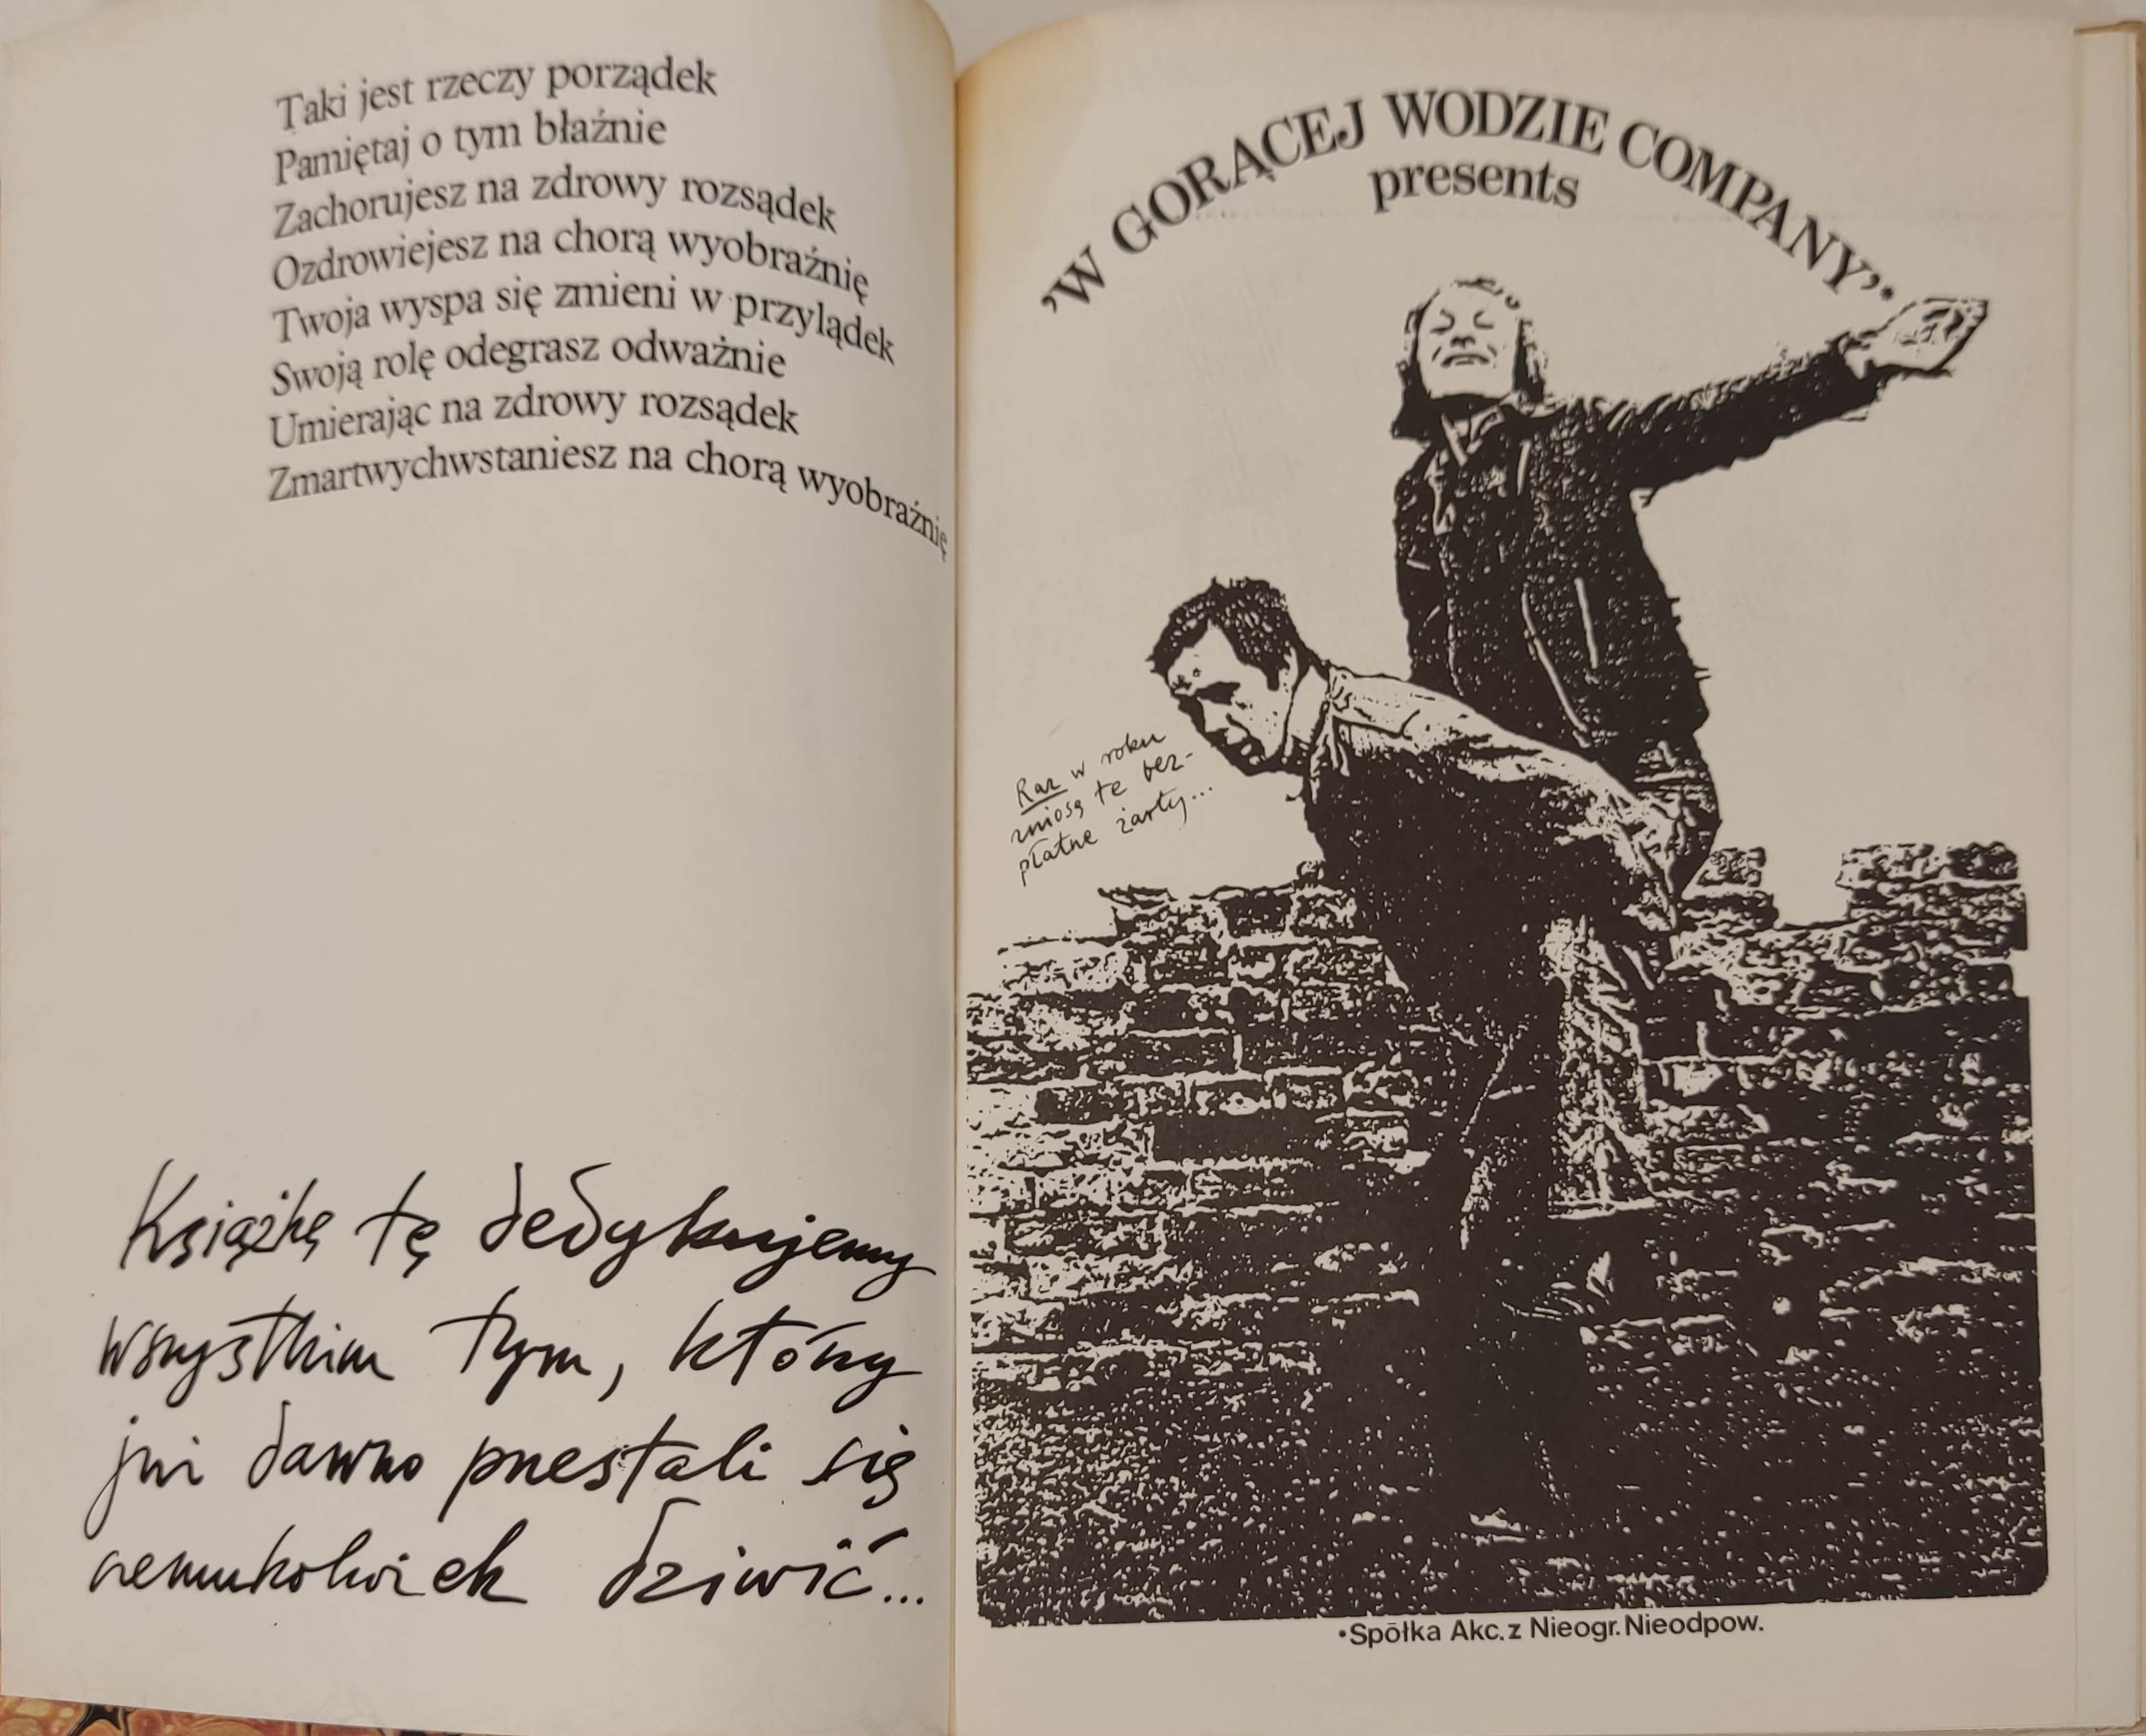 Taki jest rzeczy porządek
Pamiętaj o tym błaźnie
Zachorujesz na zdrowy rozsądek
Ozdrowiejesz na chorą wyobraźnię
Twoja wyspa się zmieni w przylądek
Swoją rolę odegrasz odważnie
Umierając na zdrowy rozsądek
Zmartwychwstaniesz na chorą wyobraźnię
Książkę tę dedykujemy
wszystkim tym, którzy
już dawno przestali się
czemukolwiek dziwić...
’W GORĄCEJ WODZIE COMPANY’•
presents
Raz w roku
zniosą te bez-
płatne żarty...
•Spōłka Akc. z Nieogr. Nieodpow.